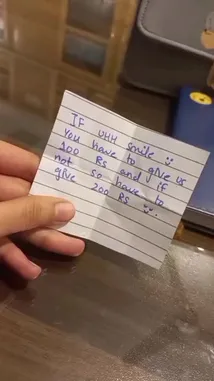 IF uhh smile ☺
You have to give us
100 Rs and if
not so have to
give 200 Rs ☺.